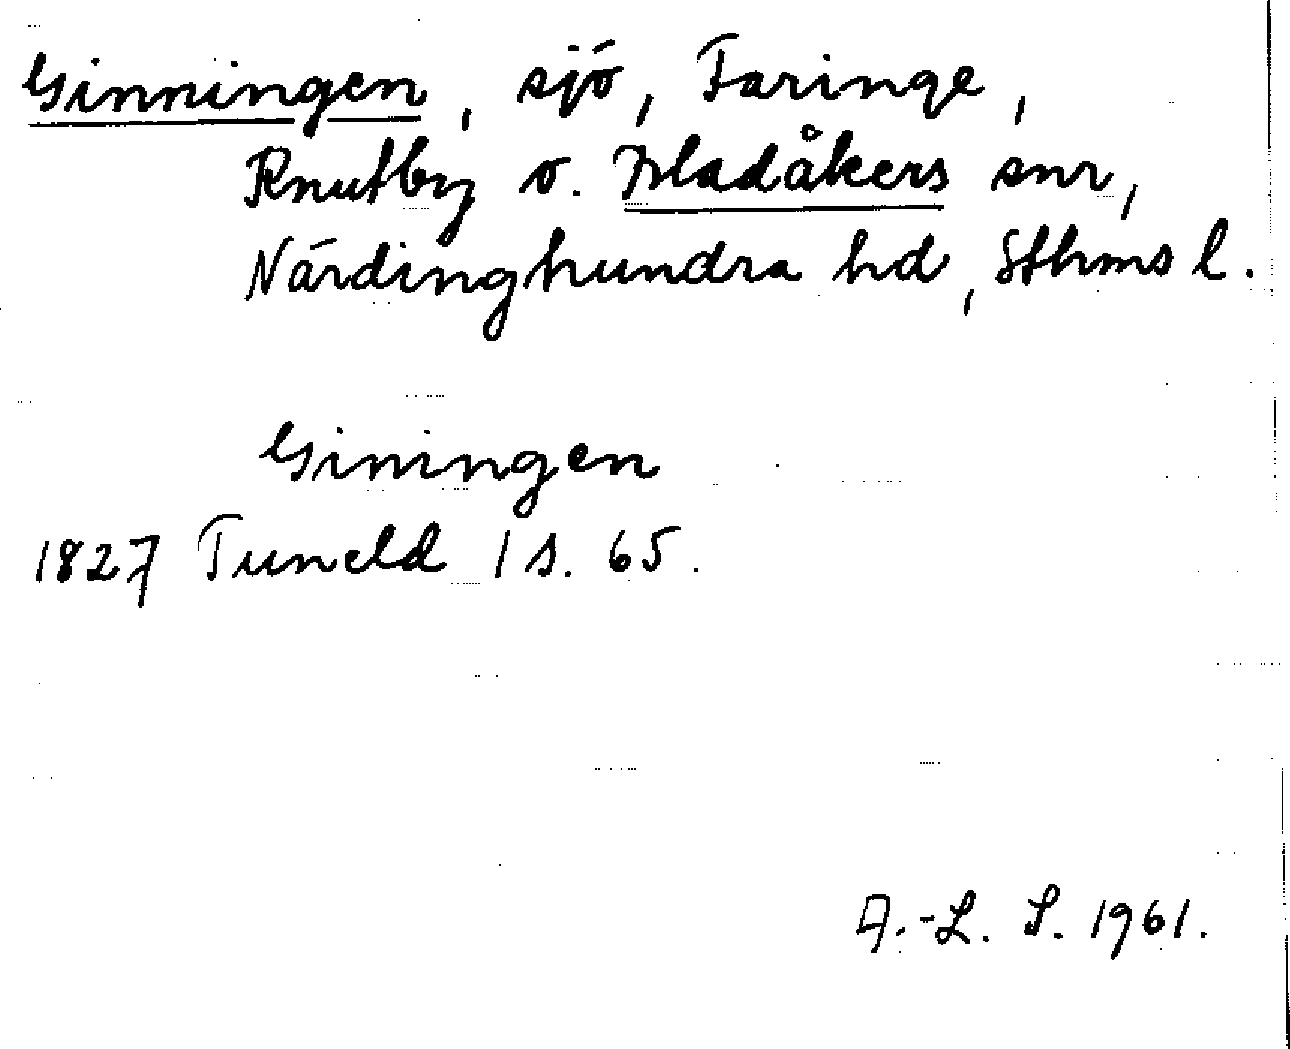 Ginningen, sjö, Faringe,
Knutby o. Bladåkers snr,
Närdinghundra hd, Sthms l.
Giningen
1827 Tuneld 1 s. 65.
A.-L. S. 1961.